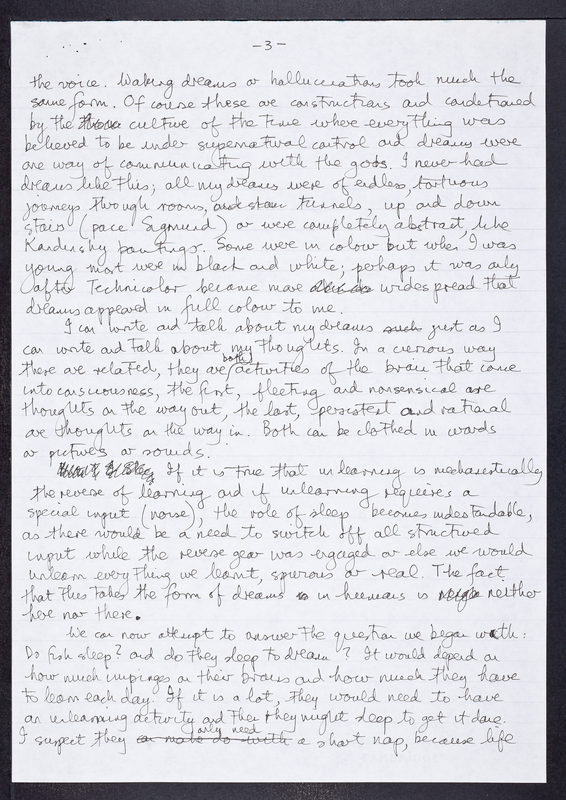 -3-
the voice. Waking dreams or hallucinations took much the
same form. Of course these are constructions and conditioned
by the culture of the time where everything was
believed to be under supernatural control and dreams were
one way of communicating with the gods. I never had
dreams like this; all my dreams were of endless, tortuous
journeys through rooms, and stairs tunnels, up and down
stairs (pace Sigmund) or were completely abstract, like
Kandinsky paintings. Some were in colour but when I was
young most were in black and white; perhaps it was only
after Technicolor became more widespread that
dreams appeared in full colour to me.
I can write and talk about my dreams such just as I
can write and talk about my thoughts. In a curious way
these are related, they are both activities of the brain that come
into consciousness, the first, fleeting and nonsensical are
thoughts on the way out, the last, persistent and rational
are thoughts on the way in. Both can be clothed in words
or pictures or sounds.
If it is true that unlearning is mechanistically
the reverse of learning and if unlearning requires a
special input (noise), the role of sleep becomes understandable,
as there would be a need to switch off all structured
input while the reverse gear was engaged or else we would
unlearn everything we learnt, spurious or real. The fact
that this takes the form of dreams is in humans is neither
here nor there.
We can now attempt to answer the question we began with:
Do fish sleep? and do they sleep to dream? It would depend on
how much impinges on their brains and how much they have
to learn each day. If it is a lot, they would need to have
an unlearning activity and then they might sleep to get it done.
I suspect they only need or make do with a short nap, because life